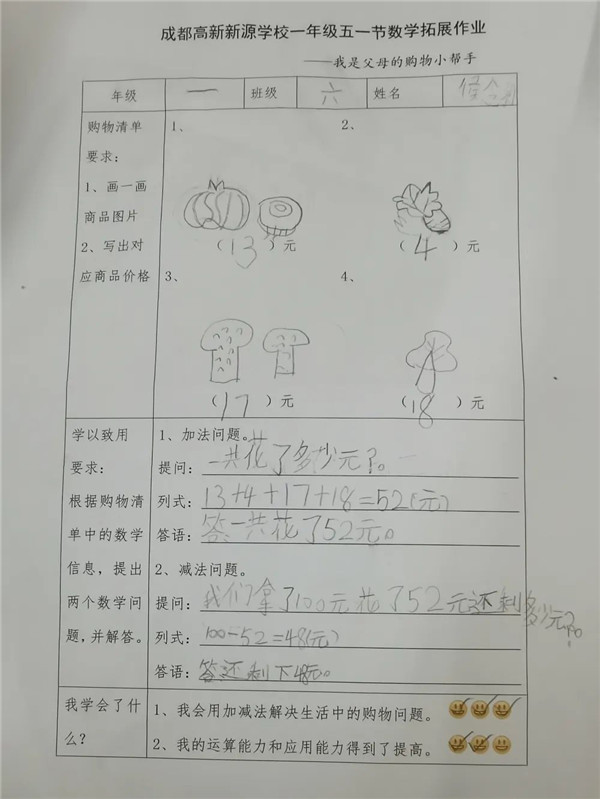 成都高新新源学校一年级五一节数学拓展作业
——我是父母的购物小帮手
年级 一 班级 六 姓名
购物清单
要求：
1、画一画
商品图片
2、写出对
应商品价格
1、
2、
（13）元
（4）元
3、
4、
（17）元
（18）元
学以致用
要求：
根据购物清
单中的数学
信息，提出
两个数学问
题，并解答。
1、加法问题。
提问：一共花了多少元？。
列式：13+4+17+18=52(元)
答语：答一共花了52元。
2、减法问题。
提问：我们拿了100元花了52元还剩多少元？。
列式：100-52=48(元)
答语：答还剩下48元。
我学会了什
么？
1、我会用加减法解决生活中的购物问题。
2、我的运算能力和应用能力得到了提高。